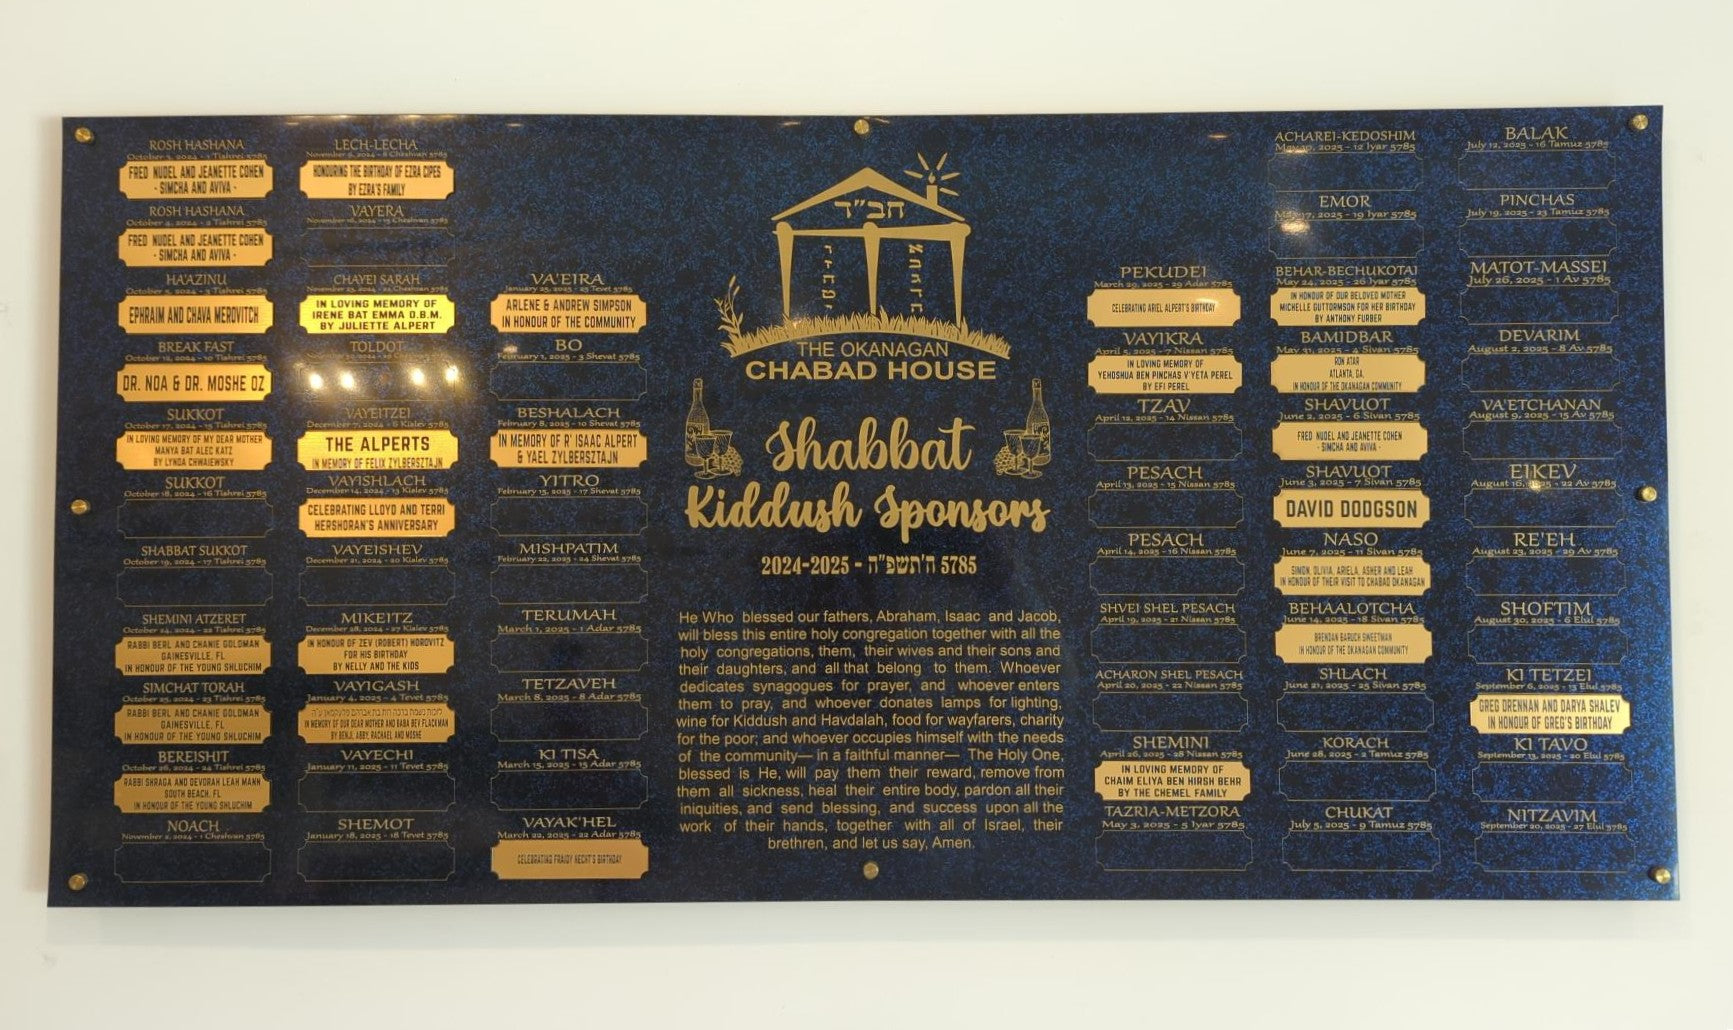 ROSH HASHANA
October 3, 2024 - 1 Tishrei 5785
FRED NUDEL AND JEANETTE COHEN
- SIMCHA AND AVIVA -
ROSH HASHANA
October 4, 2024 - 2 Tishrei 5785
FRED NUDEL AND JEANETTE COHEN
- SIMCHA AND AVIVA -
HA'AZINU
October 5, 2024 - 3 Tishrei 5785
EPHRAIM AND CHAVA MEROVITCH
BREAK FAST
October 12, 2024 - 10 Tishrei 5785
DR. NOA & DR. MOSHE OZ
SUKKOT
October 17, 2024 - 15 Tishrei 5785
IN LOVING MEMORY OF MY DEAR MOTHER
MANYA BAT ALEC KATZ
BY LYNDA CHWAIEWSKY
SUKKOT
October 18, 2024 - 16 Tishrei 5785
SHABBAT SUKKOT
October 19, 2024 - 17 Tishrei 5785
SHEMINI ATZERET
October 24, 2024 - 22 Tishrei 5785
RABBI BERL AND CHANIE GOLDMAN
GAINESVILLE, FL
IN HONOUR OF THE YOUNG SHLUCHIM
SIMCHAT TORAH
October 25, 2024 - 23 Tishrei 5785
RABBI BERL AND CHANIE GOLDMAN
GAINESVILLE, FL
IN HONOUR OF THE YOUNG SHLUCHIM
BEREISHIT
October 26, 2024 - 24 Tishrei 5785
RABBI SHRAGA AND DEVORAH LEAH MANN
SOUTH BEACH, FL
IN HONOUR OF THE YOUNG SHLUCHIM
NOACH
November 2, 2024 - 1 Cheshvan 5785
LECH-LECHA
November 9, 2024 - 8 Cheshvan 5785
HONOURING THE BIRTHDAY OF EZRA CIPES
BY EZRA'S FAMILY
VAYERA
November 16, 2024 - 15 Cheshvan 5785
CHAYEI SARAH
November 23, 2024 - 22 Cheshvan 5785
IN LOVING MEMORY OF
IRENE BAT EMMA O.B.M.
BY JULIETTE ALPERT
TOLDOT
VAYEITZEI
December 7, 2024 - 6 Kislev 5785
THE ALPERTS
IN MEMORY OF FELIX ZYLBERSZTAJN
VAYISHLACH
December 14, 2024 - 13 Kislev 5785
CELEBRATING LLOYD AND TERRI
HERSHORAN'S ANNIVERSARY
VAYEISHEV
December 21, 2024 - 20 Kislev 5785
MIKEITZ
December 28, 2024 - 27 Kislev 5785
IN HONOUR OF ZEV (ROBERT) HOROVITZ
FOR HIS BIRTHDAY
BY NELLY AND THE KIDS
VAYIGASH
January 4, 2025 - 4 Tevet 5785
IN MEMORY OF OUR DEAR MOTHER AND BABA BEV FLACKMAN
BY BENJI, ABBY, RACHAEL AND MOSHE
VAYECHI
January 11, 2025 - 11 Tevet 5785
SHEMOT
January 18, 2025 - 18 Tevet 5785
VA'EIRA
January 25, 2025 - 25 Tevet 5785
ARLENE & ANDREW SIMPSON
IN HONOUR OF THE COMMUNITY
BO
February 1, 2025 - 3 Shevat 5785
BESHALACH
February 8, 2025 - 10 Shevat 5785
IN MEMORY OF R' ISAAC ALPERT
& YAEL ZYLBERSZTAJN
YITRO
February 15, 2025 - 17 Shevat 5785
MISHPATIM
February 22, 2025 - 24 Shevat 5785
TERUMAH
March 1, 2025 - 1 Adar 5785
TETZAVEH
March 8, 2025 - 8 Adar 5785
KI TISA
March 15, 2025 - 15 Adar 5785
VAYAK'HEL
March 22, 2025 - 22 Adar 5785
CELEBRATING FRAIDY HECHT'S BIRTHDAY
חב"ד
THE OKANAGAN
CHABAD HOUSE
Shabbat
Kiddush Sponsors
2024-2025 - ה'תשפ"ה 5785
He Who blessed our fathers, Abraham, Isaac and Jacob,
will bless this entire holy congregation together with all the
holy congregations, them, their wives and their sons and
their daughters, and all that belong to them. Whoever
dedicates synagogues for prayer, and whoever enters
them to pray, and whoever donates lamps for lighting,
wine for Kiddush and Havdalah, food for wayfarers, charity
for the poor; and whoever occupies himself with the needs
of the community— in a faithful manner— The Holy One,
blessed is He, will pay them their reward, remove from
them all sickness, heal their entire body, pardon all their
iniquities, and send blessing, and success upon all the
work of their hands, together with all of Israel, their
brethren, and let us say, Amen.
PEKUDEI
March 29, 2025 - 29 Adar 5785
CELEBRATING ARIEL ALPERT'S BIRTHDAY
VAYIKRA
April 5, 2025 - 7 Nissan 5785
IN LOVING MEMORY OF
YEHOSHUA BEN PINCHAS V'YETA PEREL
BY EFI PEREL
TZAV
April 12, 2025 - 14 Nissan 5785
PESACH
April 13, 2025 - 15 Nissan 5785
PESACH
April 14, 2025 - 16 Nissan 5785
SHVEI SHEL PESACH
April 19, 2025 - 21 Nissan 5785
ACHARON SHEL PESACH
April 20, 2025 - 22 Nissan 5785
SHEMINI
April 26, 2025 - 28 Nissan 5785
IN LOVING MEMORY OF
CHAIM ELIYA BEN HIRSH BEHR
BY THE CHEMEL FAMILY
TAZRIA-METZORA
May 3, 2025 - 5 Iyar 5785
ACHAREI-KEDOSHIM
May 10, 2025 - 12 Iyar 5785
EMOR
May 17, 2025 - 19 Iyar 5785
BEHAR-BECHUKOTAI
May 24, 2025 - 26 Iyar 5785
IN HONOUR OF OUR BELOVED MOTHER
MICHELLE GUTTORMSON FOR HER BIRTHDAY
BY ANTHONY FURBER
BAMIDBAR
May 31, 2025 - 4 Sivan 5785
RON ATAR
ATLANTA, GA.
IN HONOUR OF THE OKANAGAN COMMUNITY
SHAVUOT
June 2, 2025 - 6 Sivan 5785
FRED NUDEL AND JEANETTE COHEN
- SIMCHA AND AVIVA -
SHAVUOT
June 3, 2025 - 7 Sivan 5785
DAVID DODGSON
NASO
June 7, 2025 - 11 Sivan 5785
SIMON, OLIVIA, ARIELA, ASHER AND LEAH
IN HONOUR OF THEIR VISIT TO CHABAD OKANAGAN
BEHAALOTCHA
June 14, 2025 - 18 Sivan 5785
BRENDAN BARUCH SWEETMAN
IN HONOUR OF THE OKANAGAN COMMUNITY
SHLACH
June 21, 2025 - 25 Sivan 5785
KORACH
June 28, 2025 - 2 Tamuz 5785
CHUKAT
July 5, 2025 - 9 Tamuz 5785
BALAK
July 12, 2025 - 16 Tamuz 5785
PINCHAS
July 19, 2025 - 23 Tamuz 5785
MATOT-MASSEI
July 26, 2025 - 1 Av 5785
DEVARIM
August 2, 2025 - 8 Av 5785
VA'ETCHANAN
August 9, 2025 - 15 Av 5785
EIKEV
August 16, 2025 - 22 Av 5785
RE'EH
August 23, 2025 - 29 Av 5785
SHOFTIM
August 30, 2025 - 6 Elul 5785
KI TETZEI
September 6, 2025 - 13 Elul 5785
GREG DRENNAN AND DARYA SHALEV
IN HONOUR OF GREG'S BIRTHDAY
KI TAVO
September 13, 2025 - 20 Elul 5785
NITZAVIM
September 20, 2025 - 27 Elul 5785